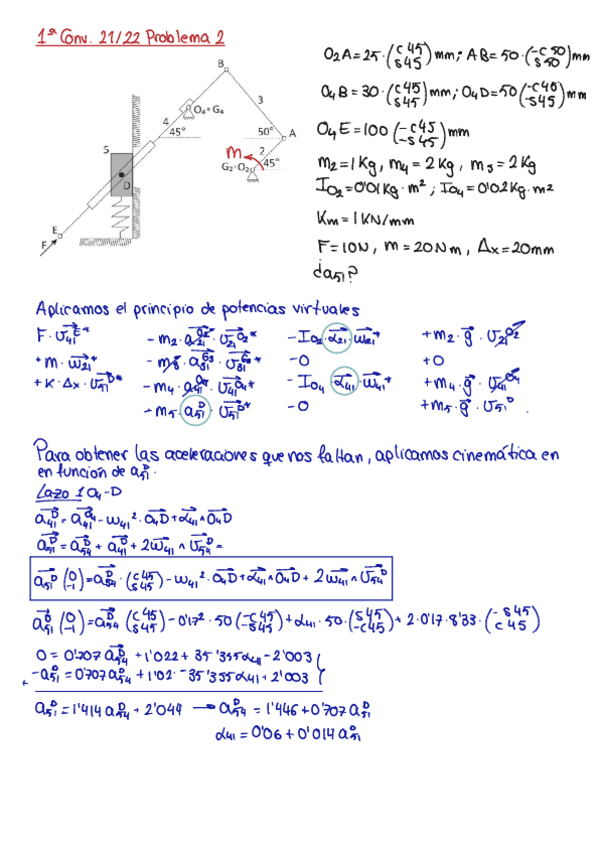 1ª Conv. 21/22 Problema 2
B
3
O4=G4
4
45°
50°
A
m
2
5
G2=O2
45°
D
E
F
O2A=25·(c45 s45) mm; AB=50·(-c50 s50) mm
O4B=30·(c45 s45) mm; O4D=50(-c45 -s45) mm
O4E=100(-c45 -s45) mm
m2=1Kg, m4=2Kg, m5=2Kg
IO2=0'01Kg·m²; IO4=0'02Kg·m²
Km=1KN/mm
F=10N, m=20Nm, Δx=20mm
¿a51?
Aplicamos el principio de potencias virtuales
F·v41^E* -m2·a21^G2·v21^O2* -IO2·α21·ω21* +m2·g·v21^O2
+m·ω21* -m3·a31^G3·v31^G3* -0 +0
+K·Δx·v51^D* -m4·a41^O4·v41^O4* -IO4·α41·ω41* +m4·g·v41^O4
-m5·a51^D·v51^D* -0 +m5·g·v51^D
Para obtener las aceleraciones que nos faltan, aplicamos cinemática en
en función de a51^D.
Lazo 1 O4-D
a41^D=a41^O4-ω41²·O4D+α41∧O4D
a51^D=a54^D+a41^D+2ω41∧v54^D=
a51^D(0 -1)=a54^D·(c45 s45)-ω41²·O4D+α41∧O4D+2ω41∧v54^D
a51^D(0 -1)=a54^D(c45 s45)-0'17²·50(-c45 -s45)+α41·50·(s45 -c45)+2·0'17·8'33·(-s45 c45)
0=0'707a54^D+1'022+35'355α41-2'003
+ -a51^D=0'707a54^D+1'02·-35'355α41+2'003
a51^D=1'414a54^D+2'044 → a54^D=1'446+0'707a51^D
α41=0'06+0'014a51^D